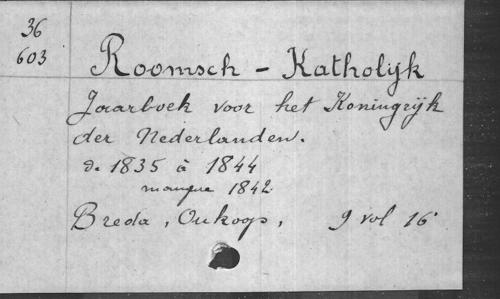 36
603
Roomsch - Katholijk
Jaarboek voor het Koningrijk
der Nederlanden.
de 1835 à 1844
manque 1842
Breda, Oukoop, 9 vol 16°